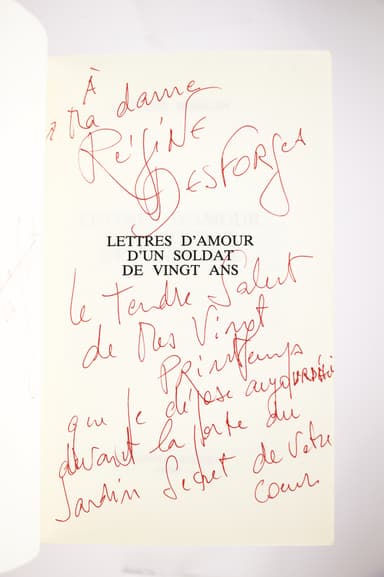 À
Ma dame
RÉGINE
DESFORGES
LETTRES D'AMOUR
D'UN SOLDAT
DE VINGT ANS
le Tendre Salut
de Mes Vingt
PRINTEMPS
que je dépose aujourd'hui
devant la porte du
Jardin Secret de Votre
Coeur